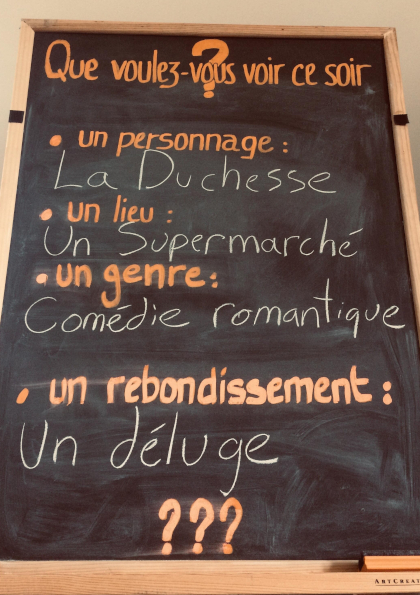 Que voulez-vous voir ce soir
?
• un personnage :
La Duchesse
• un lieu :
Un Supermarché
• un genre :
Comédie romantique
• un rebondissement :
Un déluge
???